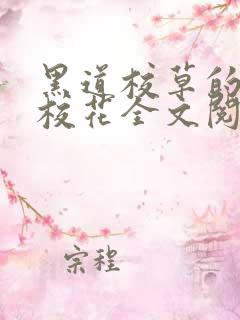 黑道校草的
校花全文阅
宗程